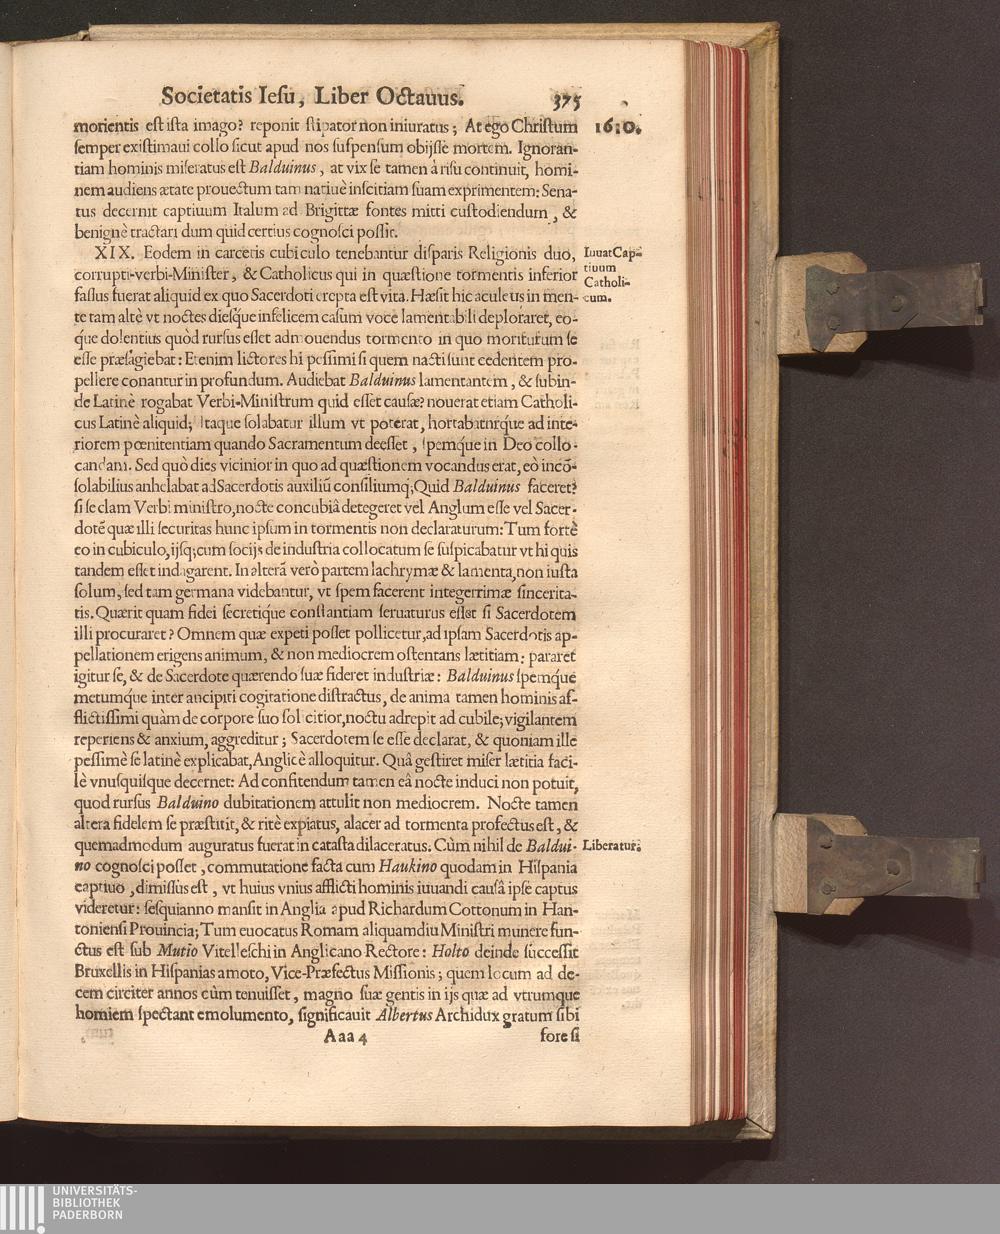 Societatis Iesu, Liber Octauus. 375
morientis est ista imago? reponit stipator non iniuratus; At ego Christum 1610.
semper existimaui collo sicut apud nos suspensum obijssè mortem. Ignoran-
tiam hominis miseratus est Balduinus, at vix se tamen à risu continuit, homi-
nem audiens ætate prouectum tam natiuè inscitiam suam exprimentem: Sena-
tus decernit captiuum Italum ad Brigittæ fontes mitti custodiendum, &
benignè tractari dum quid certius cognosci possit.
XIX. Eodem in carceris cubiculo tenebantur disparis Religionis duo, Iuuat Cap-
tiuum
Catholi-
cum.
corrupti-verbi-Minister, & Catholicus qui in quæstione tormentis inferior
fassus fuerat aliquid ex quo Sacerdoti erepta est vita. Hæsit hic aculeus in men-
te tam altè vt noctes diesq́ue infelicem casum voce lamentabili deploraret, eo-
q́ue dolentius quòd rursus esset admouendus tormento in quo moriturum se
esse præsagiebat: Etenim lictores hi pessimi si quem nacti sunt cedentem pro-
pellere conantur in profundum. Audiebat Balduinus lamentantem, & subin-
de Latinè rogabat Verbi-Ministrum quid esset causæ? nouerat etiam Catholi-
cus Latinè aliquid; Itaque solabatur illum vt poterat, hortabaturq́ue ad inte-
riorem pœnitentiam quando Sacramentum deesset, spemq́ue in Deo collo-
candam. Sed quò dies vicinior in quo ad quæstionem vocandus erat, eò incõ-
solabilius anhelabat ad Sacerdotis auxiliũ consiliumq;. Quid Balduinus faceret?
si se clam Verbi ministro, nocte concubiâ detegeret vel Anglum esse vel Sacer-
dotẽ quæ illi securitas hunc ipsum in tormentis non declaraturum: Tum fortè
eo in cubiculo, ijsq; cum socijs de industria collocatum se suspicabatur vt hi quis
tandem esset indagarent. In alterã verò partem lachrymæ & lamenta, non iusta
solum, sed tam germana videbantur, vt spem facerent integerrimæ sincerita-
tis. Quærit quam fidei secretiq́ue constantiam seruaturus esset si Sacerdotem
illi procuraret? Omnem quæ expeti posset pollicetur, ad ipsam Sacerdotis ap-
pellationem erigens animum, & non mediocrem ostentans lætitiam: pararet
igitur se, & de Sacerdote quærendo suæ fideret industriæ: Balduinus spemq́ue
metumq́ue inter ancipiti cogitatione distractus, de anima tamen hominis af-
flictissimi quàm de corpore suo sollicitior, noctu adrepit ad cubile; vigilantem
reperiens & anxium, aggreditur; Sacerdotem se esse declarat, & quoniam ille
pessimè se latinè explicabat, Anglicè alloquitur. Quâ gestiret miser lætitia faci-
lè vnusquisque decernet: Ad confitendum tamen eâ nocte induci non potuit,
quod rursus Balduino dubitationem attulit non mediocrem. Nocte tamen
altera fidelem se præstitit, & ritè expiatus, alacer ad tormenta profectus est, &
quemadmodum auguratus fuerat in catasta dilaceratus. Cùm nihil de Baldui- Liberatur.
no cognosci posset, commutatione facta cum Haukino quodam in Hispania
captiuo, dimissus est, vt huius vnius afflicti hominis iuuandi causâ ipse captus
videretur: sesquianno mansit in Anglia apud Richardum Cottonum in Han-
toniensi Prouincia; Tum euocatus Romam aliquamdiu Ministri munere fun-
ctus est sub Mutio Vitelleschi in Anglicano Rectore: Holto deinde successit
Bruxellis in Hispanias amoto, Vice-Præfectus Missionis; quem locum ad de-
cem circiter annos cùm tenuisset, magno suæ gentis in ijs quæ ad vtrumque
homiem spectant emolumento, significauit Albertus Archidux gratum sibi
Aaa 4 fore si
UNIVERSITÄTS-
BIBLIOTHEK
PADERBORN